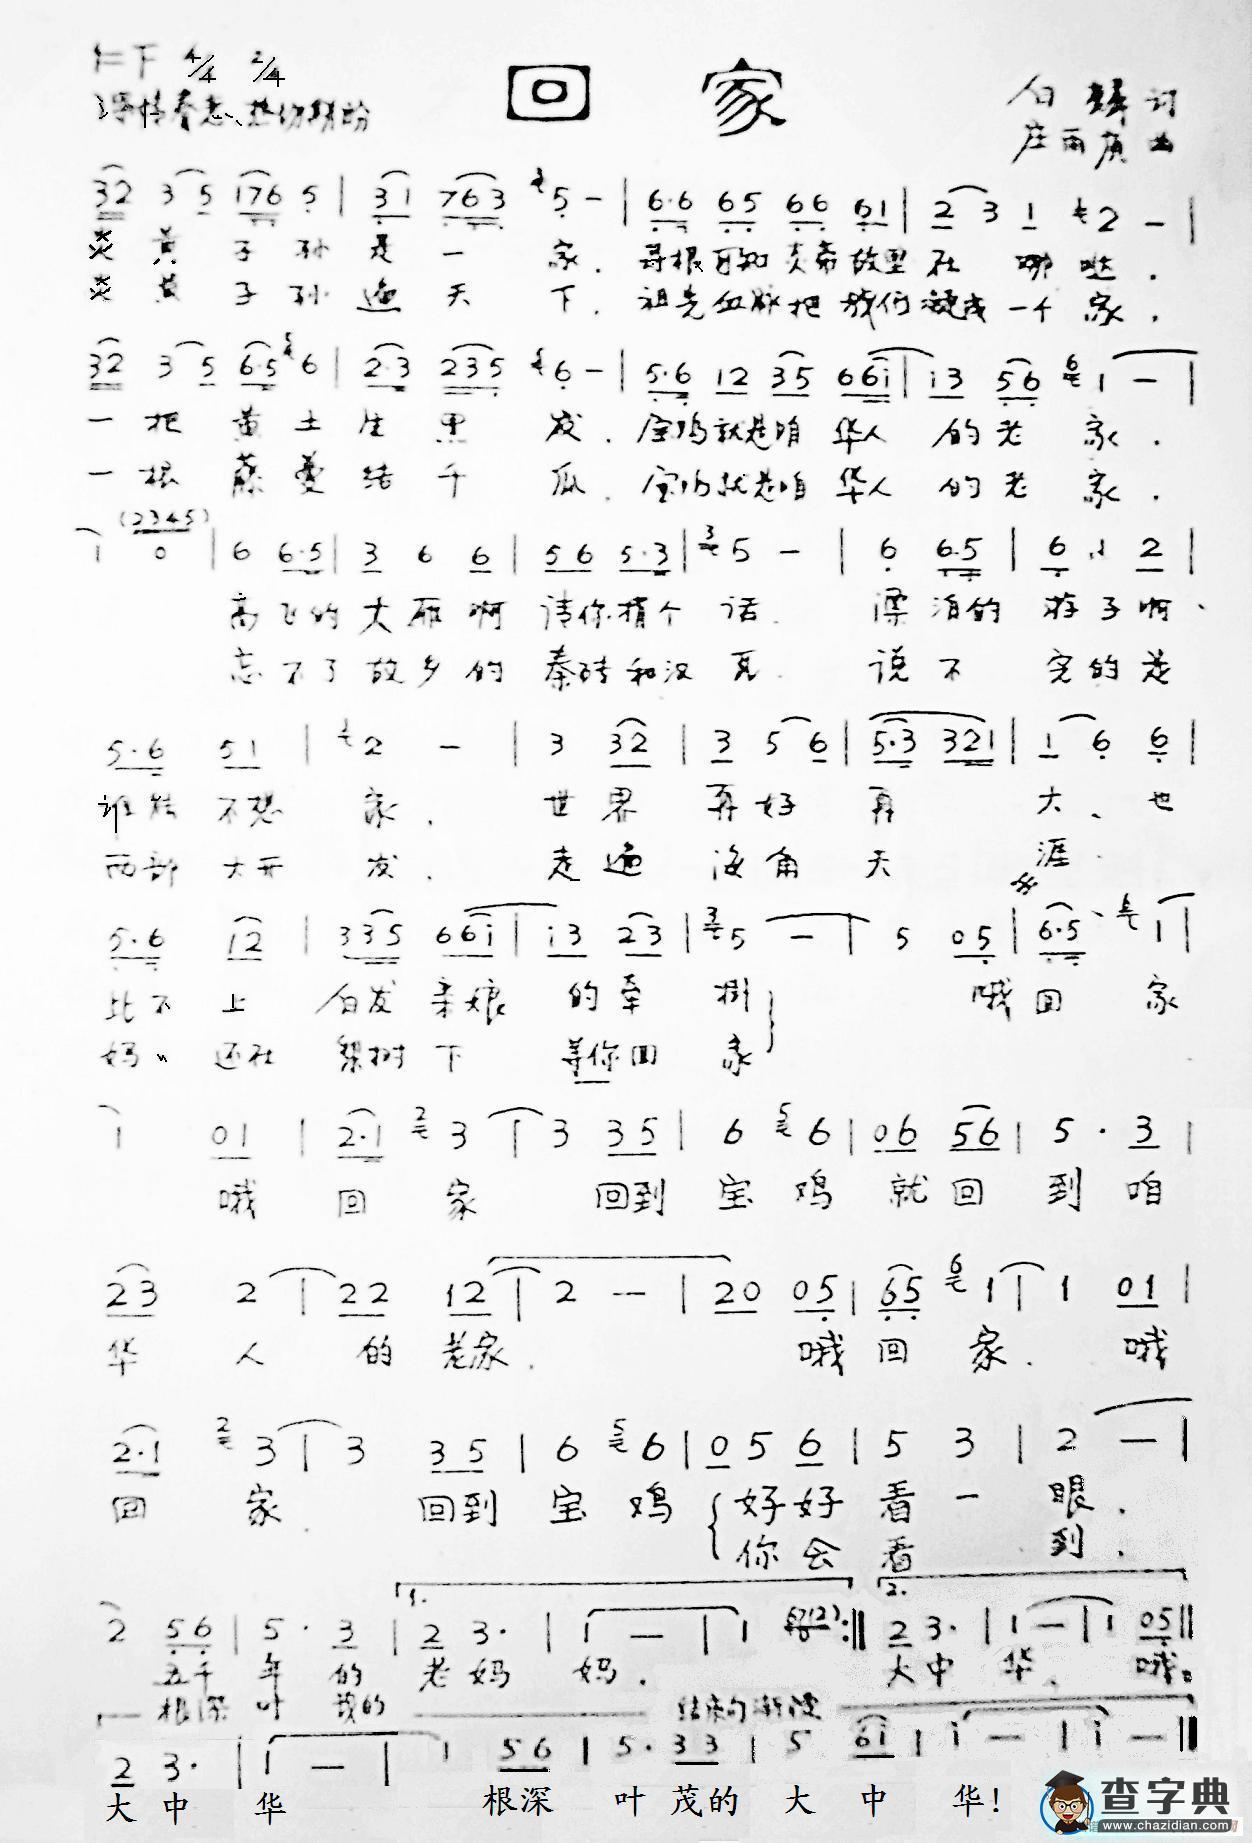 回家
4/4 2/4
词
庄雨 曲
32 3 5 176 5 | 3 1 763 5 - | 6·6 65 66 61 | 2 3 1 2 - |
炎黄子孙是一家．寻根可知炎帝故里在哪哒．
炎黄子孙遍天下．祖先血脉把我们凝成一个家．
32 3 5 6·5 6 | 2·3 235 6 - | 5·6 12 35 66i | i3 56 1 - |
一把黄土生黑发．宝鸡就是咱华人的老家．
一根藤蔓结千瓜．宝鸡就是咱华人的老家．
(2345)
1 0 | 6 6·5 | 3 6 6 | 56 5·3 | 5 - | 6 6·5 | 6 1 2 |
高飞的大雁啊请你捎个话．漂泊的游子啊、
忘不了故乡的秦砖和汉瓦．说不完的是
5·6 51 | 2 - | 3 32 | 3 5 6 | 5·3 321 | 1 6 6 |
谁能不想家．世界再好再大、也
西部大开发．走遍海角天涯．
5·6 12 | 335 66i | i3 23 | 5 - | 5 05 | 6·5 1 |
比不上白发亲娘的牵挂 哦回家
妈、还在梨树下等你回家
1 01 | 2·1 3 | 3 35 | 6 6 | 06 56 | 5· 3 |
哦回家 回到宝鸡就回到咱
23 2 | 22 12 | 2 - | 20 05 | 65 1 | 1 01 |
华人的老家． 哦回家．哦
2·1 3 | 3 35 | 6 6 | 0 5 6 | 5 3 | 2 - |
回家．回到宝鸡 好好看一眼．
你会看到．
1. 2.
2 56 | 5· 3 | 2 3· | 1 - | 1 :|| 2 3· | 1 - | 1 05 ||
五千年的老妈妈． 大中华．哦
根深叶茂的
结束句渐慢
2 3· | 1 - | 1 56 | 5· 33 | 5 6i | i - | i - ||
大中华 根深叶茂的大中华！
查字典
www.chazidian.com